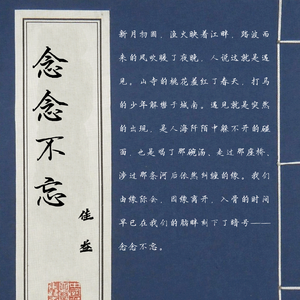 念念不忘
佳燚
新月初圆，渔火映着江畔，踏波而
来的风吹暖了夜晚，人说这就是遇
见。山寺的桃花羞红了春天，打马
的少年解鞍于城南。遇见就是突然
的出现，是人海阡陌中躲不开的碰
面，也是喝了那碗汤，走过那座桥，
涉过那条河后依然纠缠的缘。我们
由缘弥合，因缘离开，入骨的时间
早已在我们的胸畔刺下了暗号——
念念不忘。